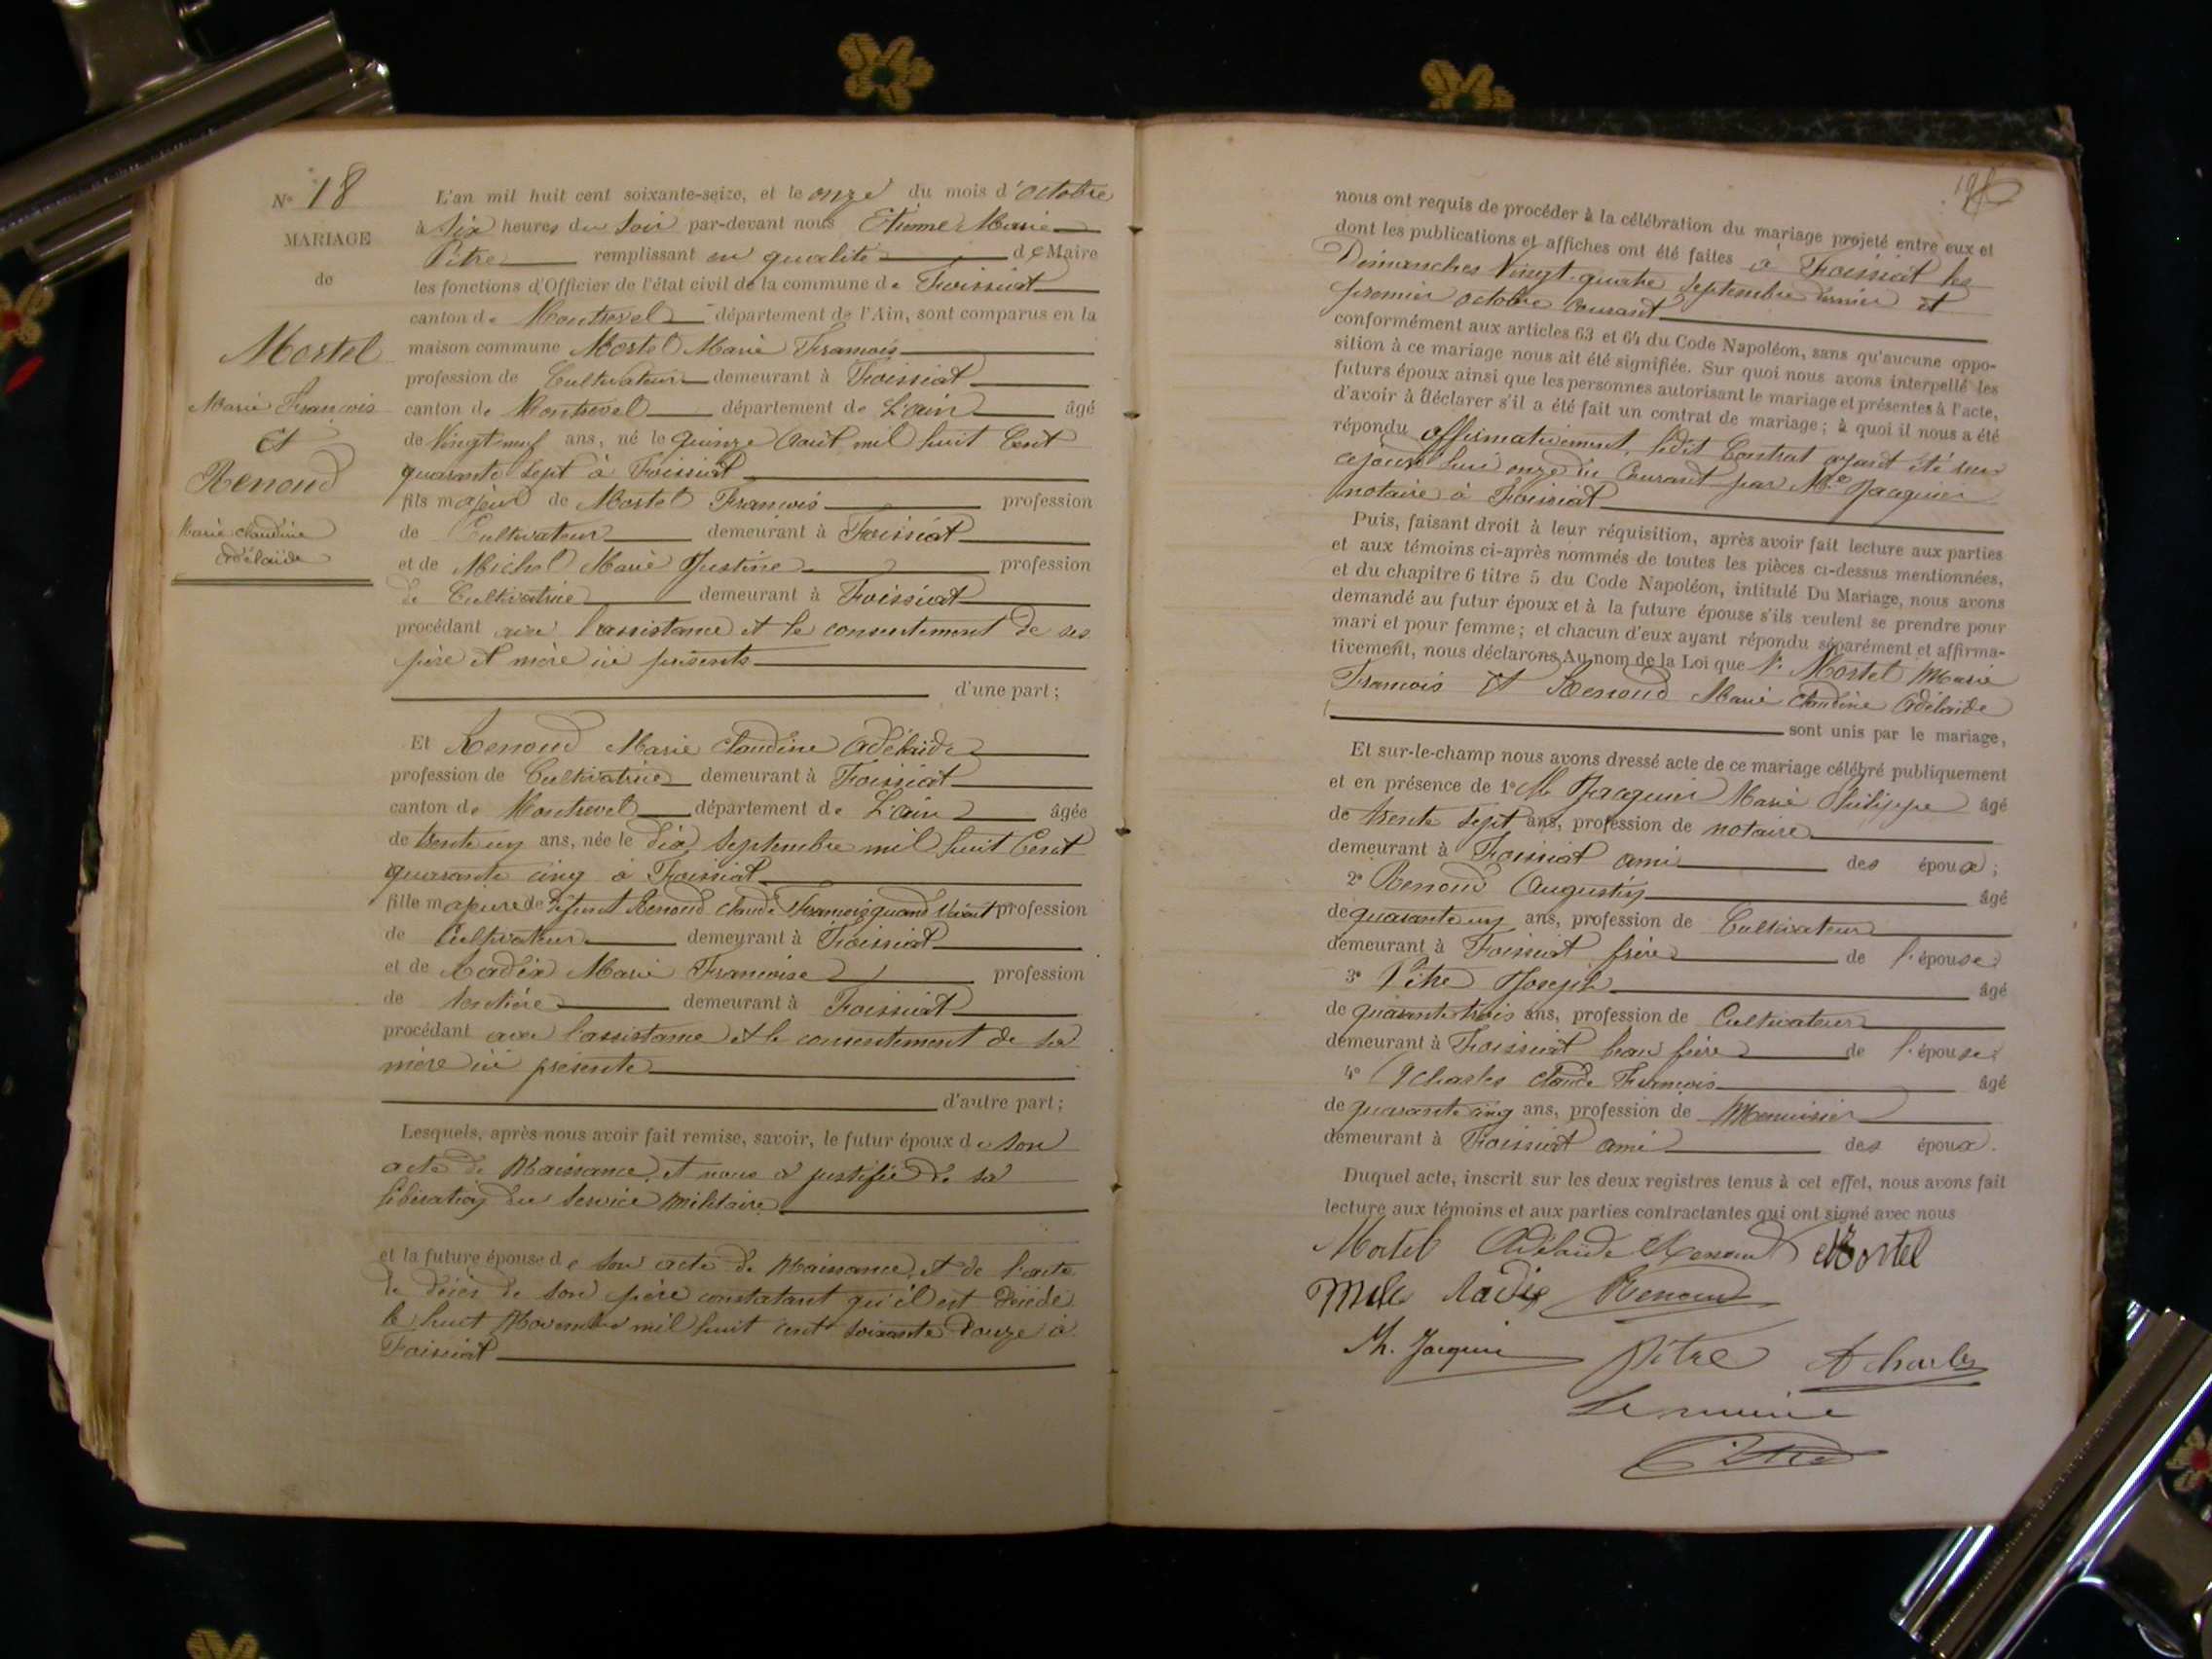 N° 18
MARIAGE
de
Mortel
Marie François
Et
Renoud
Marie Claudine
Adélaïde
L'an mil huit cent soixante-seize, et le onze du mois d'octobre
à Six heures du Soir par-devant nous Etienne Marie
Pitre remplissant en qualité de Maire
les fonctions d'Officier de l'état civil de la commune de Foissiat
canton de Montrevel département de l'Ain, sont comparus en la
maison commune Mortel Marie François
profession de Cultivateur demeurant à Foissiat
canton de Montrevel département de L'ain âgé
de Vingt neuf ans, né le quinze Août mil huit Cent
quarante sept à Foissiat
fils majeur de Mortel François profession
de Cultivateur demeurant à Foissiat
et de Michel Marie Justine profession
de Cultivatrice demeurant à Foissiat
procédant avec l'assistance et le consentement de ses
père et mère ici présents
d'une part;
Et Renoud Marie Claudine Adélaïde
profession de Cultivatrice demeurant à Foissiat
canton de Montrevel département de L'ain âgée
de trente un ans, née le dix Septembre mil huit Cent
quarante cinq à Foissiat
fille majeure de défunt Renoud Claude François quand Vivait profession
de Cultivateur demeurant à Foissiat
et de Radix Marie Françoise profession
de rentière demeurant à Foissiat
procédant avec l'assistance et le consentement de sa
mère ici présente
d'autre part;
Lesquels, après nous avoir fait remise, savoir, le futur époux de son
acte de Naissance, et nous a justifié de sa
libération du Service Militaire
et la future épouse de son acte de Naissance, et de l'acte
de décès de son père constatant qu'il est décédé
le huit Novembre mil huit cent soixante douze à
Foissiat
nous ont requis de procéder à la célébration du mariage projeté entre eux et
dont les publications et affiches ont été faites à Foissiat les
Dimanches Vingt-quatre Septembre dernier et
premier octobre courant
conformément aux articles 63 et 64 du Code Napoléon, sans qu'aucune oppo-
sition à ce mariage nous ait été signifiée. Sur quoi nous avons interpellé les
futurs époux ainsi que les personnes autorisant le mariage et présentes à l'acte,
d'avoir à déclarer s'il a été fait un contrat de mariage; à quoi il nous a été
répondu affirmativement, ledit Contrat ayant été reçu
cejourd'hui onze du Courant par Me Jacquier
notaire à Foissiat
Puis, faisant droit à leur réquisition, après avoir fait lecture aux parties
et aux témoins ci-après nommés de toutes les pièces ci-dessus mentionnées,
et du chapitre 6 titre 5 du Code Napoléon, intitulé Du Mariage, nous avons
demandé au futur époux et à la future épouse s'ils veulent se prendre pour
mari et pour femme; et chacun d'eux ayant répondu séparément et affirma-
tivement, nous déclarons Au nom de la Loi que Mortel Marie
François Et Renoud Marie Claudine Adélaïde
sont unis par le mariage,
Et sur-le-champ nous avons dressé acte de ce mariage célébré publiquement
et en présence de 1° Me Jacquier Marie Philippe âgé
de trente Sept ans, profession de notaire
demeurant à Foissiat ami des époux;
2° Renoud Augustin âgé
de quarante un ans, profession de Cultivateur
demeurant à Foissiat frère de l'épouse
3° Pitre Joseph âgé
de quarante trois ans, profession de Cultivateur
demeurant à Foissiat beau frère de l'épouse.
4° Charles Claude François âgé
de quarante cinq ans, profession de Menuisier
demeurant à Foissiat ami des époux.
Duquel acte, inscrit sur les deux registres tenus à cet effet, nous avons fait
lecture aux témoins et aux parties contractantes qui ont signé avec nous
Mortel Adélaïde Renoud Mortel
Radix Renoud
Ph. Jacquier Pitre Charles
Le maire
Pitre